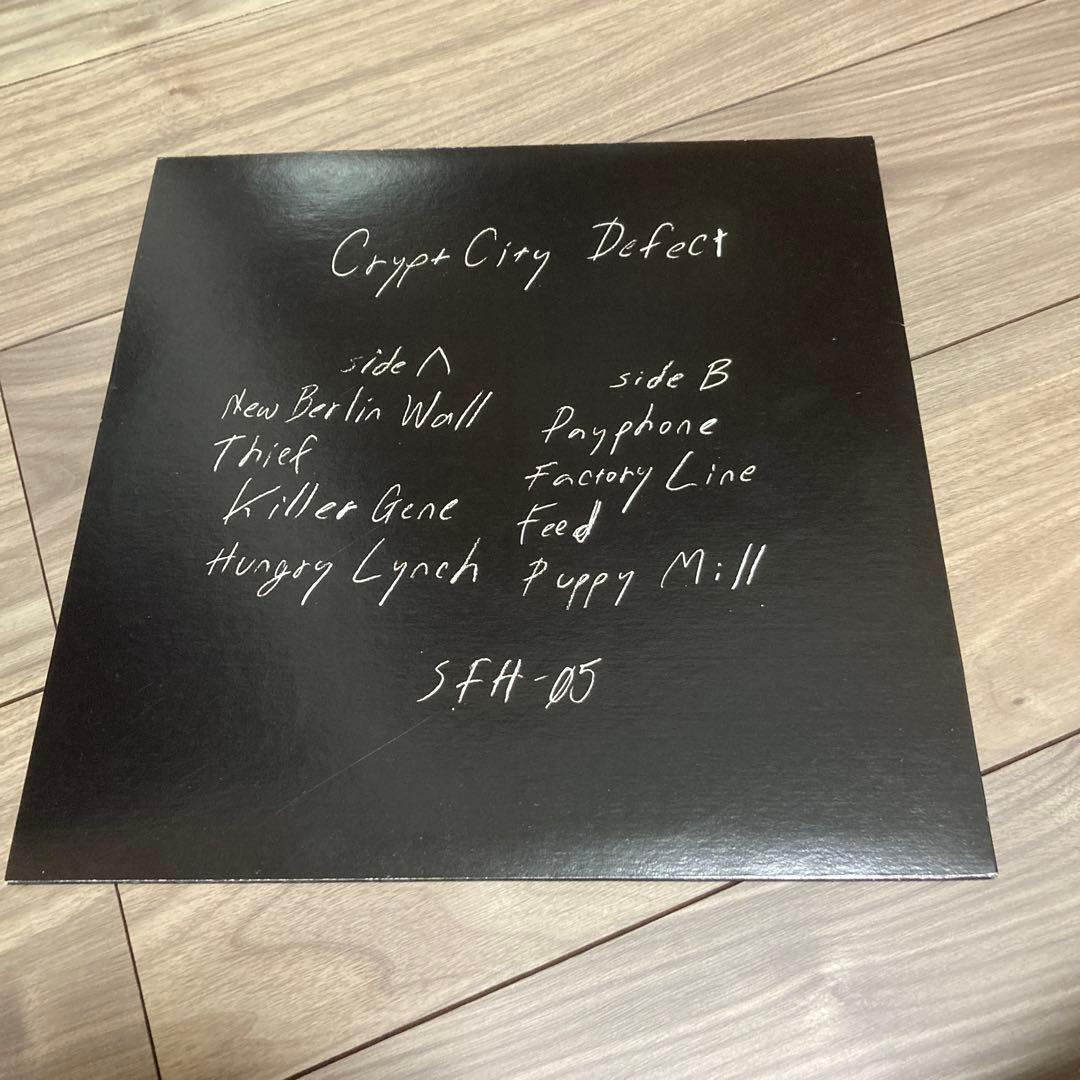 Crypt City Defect
side A
New Berlin Wall
Thief
Killer Gene
Hungry Lynch
side B
Payphone
Factory Line
Feed
Puppy Mill
SFH-05